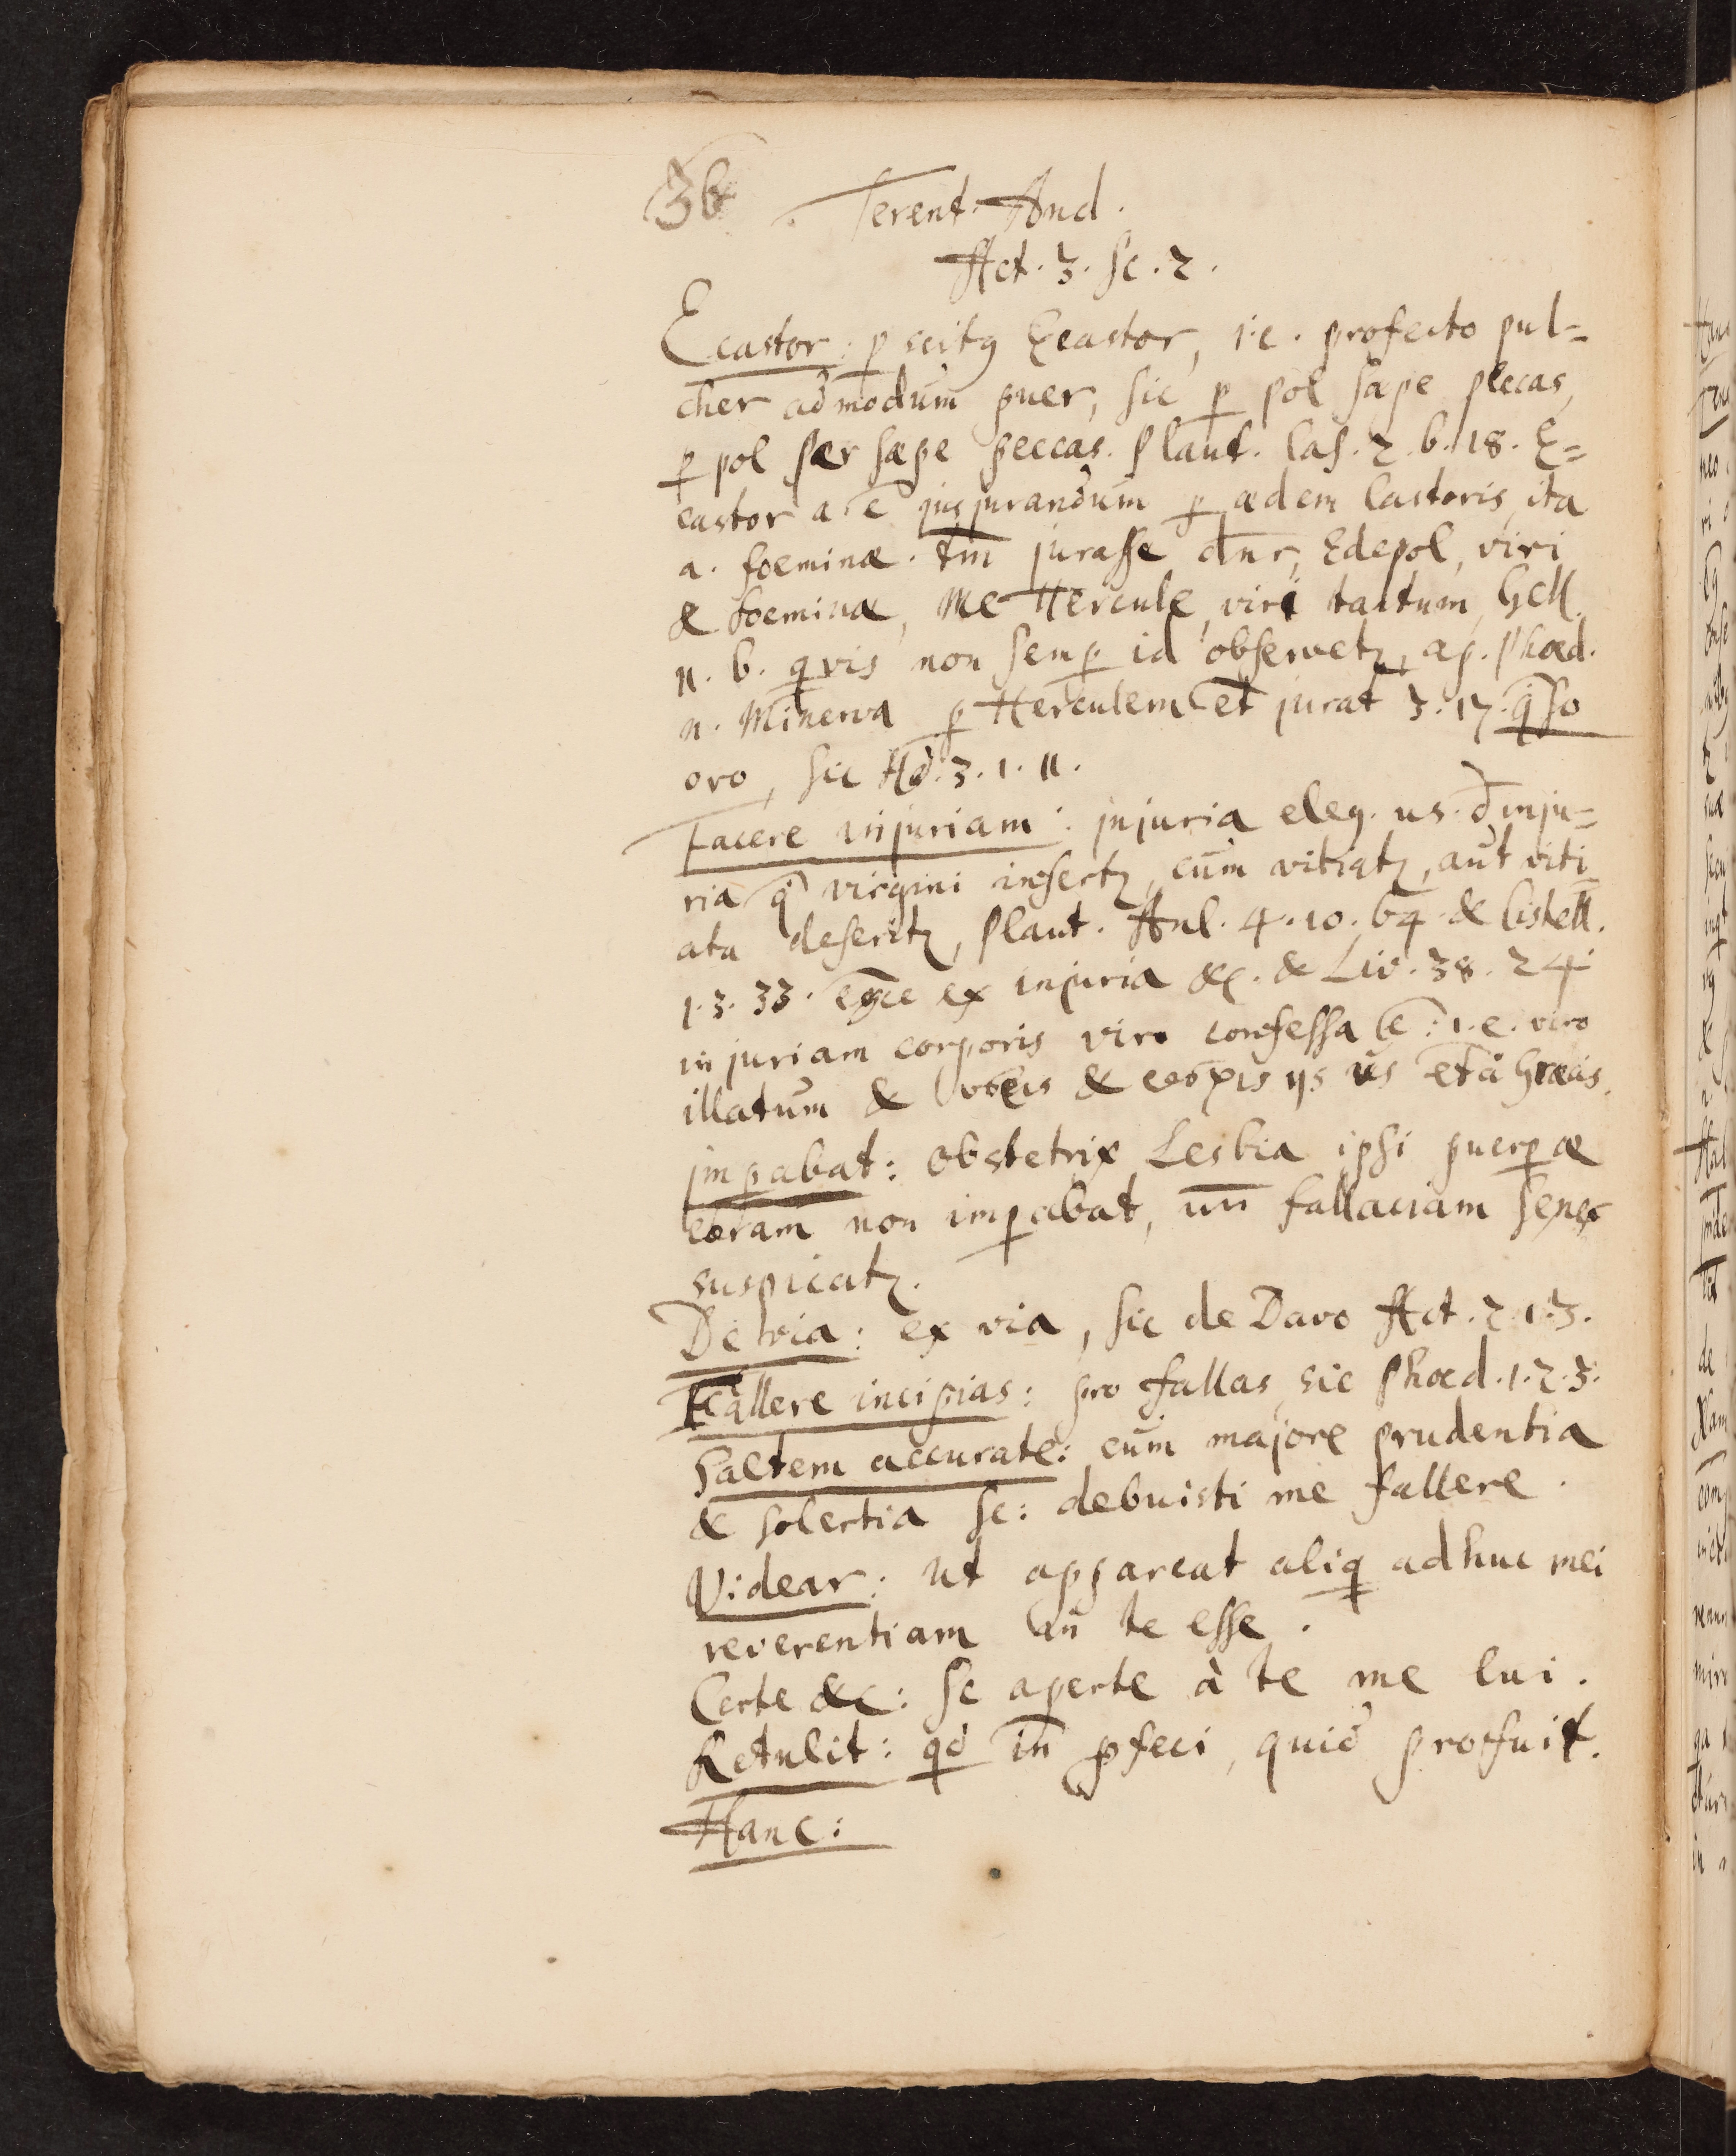 36 Terent. And.
Act. 3. sc. 2.
Ecastor: p scitq Ecastor, i.e. profecto pul=
cher admodum puer, sic p pol sæpe peccas,
p pol sær sæpe peccas. Plaut. Cas. 2. 6. 18. E=
castor a. ē jusjurandum p ædem Castoris, ita
a. foeminæ. tm̄ jurasse dn̄r, Edepol, viri
& foeminæ, Me Hercule, viri tantum, Gell.
11. 6. qvis non semp id observetz, ap. Phæd.
n. Minerva p Herculem et jurat 3. 17. q̄so
oro, sic Ad. 3. 1. 11.
Facere injuriam: injuria eleg. us. d̄ inju=
ria q̄ virgini infertz, cum vitiatz, aut viti
ata deseritz, Plaut. Aul. 4. 10. 64 & Cistell.
1. 3. 33. ex injuria &c. & Liv. 38. 24.
injuriam corporis viro confessa ē: i.e. viro
illatum & & iis us et à Græcis.
impabat: Obstetrix Lesbia ipsi puerpæ
coram non impabat, un̄ fallaciam senex
suspicatz.
De via: ex via, sic de Davo Act. 2. 1. 3.
Fallere incipias: pro fallas, sic Phæd. 1. 2. 3.
Saltem accurate: cum majore prudentia
& solertia sc: debuisti me fallere.
Videar: ut appareat aliq adhuc mei
reverentiam an̄ te esse.
Certe &c: sc aperte à te me lui.
Retulit: qd in̄ pfeci, quid profuit.
Hanc: